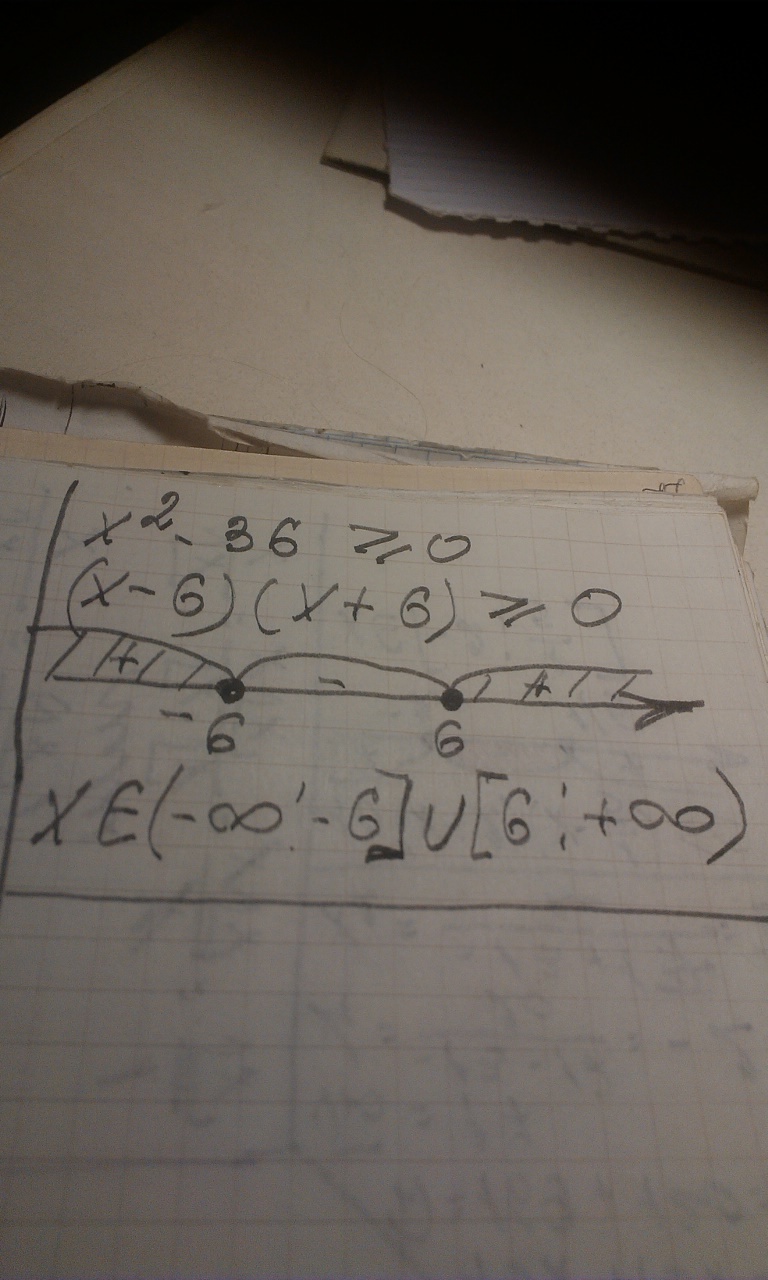 x² - 36 ≥ 0
(x - 6) (x + 6) ≥ 0
+ - +
-6 6
x ∈ (-∞; -6] ∪ [6; +∞)